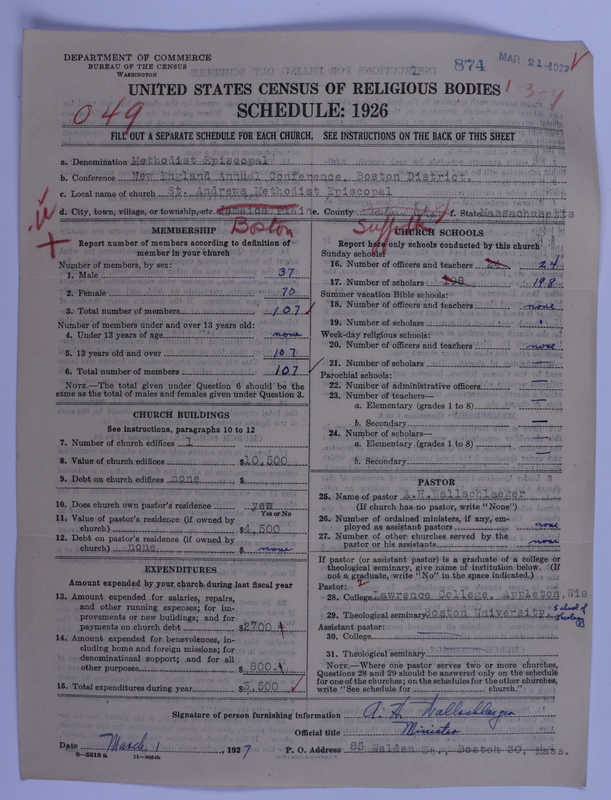 DEPARTMENT OF COMMERCE
BUREAU OF THE CENSUS
WASHINGTON
874 MAR 21 1927
UNITED STATES CENSUS OF RELIGIOUS BODIES 3-4
SCHEDULE: 1926
049
FILL OUT A SEPARATE SCHEDULE FOR EACH CHURCH. SEE INSTRUCTIONS ON THE BACK OF THIS SHEET
a. Denomination Methodist Episcopal
b. Conference New England Annual Conference, Boston District.
c. Local name of church St. Andrews Methodist Episcopal
d. City, town, village, or township, etc. Jamaica Plain e. County f. State Massachusetts
Boston Suffolk
MEMBERSHIP
Report number of members according to definition of member in your church
Number of members, by sex:
1. Male 37
2. Female 70
3. Total number of members 107
Number of members under and over 13 years old:
4. Under 13 years of age none
5. 13 years old and over 107
6. Total number of members 107
NOTE.—The total given under Question 6 should be the same as the total of males and females given under Question 3.
CHURCH BUILDINGS
See instructions, paragraphs 10 to 12
7. Number of church edifices 1
8. Value of church edifices $10,500
9. Debt on church edifices none $
10. Does church own pastor's residence yes
Yes or No
11. Value of pastor's residence (if owned by church) $4,500
12. Debt on pastor's residence (if owned by church) none $ none
EXPENDITURES
Amount expended by your church during last fiscal year
13. Amount expended for salaries, repairs, and other running expenses; for improvements or new buildings; and for payments on church debt $2700
14. Amount expended for benevolences, including home and foreign missions; for denominational support; and for all other purposes $800
15. Total expenditures during year $3,500
CHURCH SCHOOLS
Report here only schools conducted by this church
Sunday schools:
16. Number of officers and teachers 24
17. Number of scholars 198 198
Summer vacation Bible schools:
18. Number of officers and teachers none
19. Number of scholars
Week-day religious schools:
20. Number of officers and teachers none
21. Number of scholars —
Parochial schools:
22. Number of administrative officers —
23. Number of teachers—
a. Elementary (grades 1 to 8) —
b. Secondary —
24. Number of scholars—
a. Elementary (grades 1 to 8) —
b. Secondary —
PASTOR
25. Name of pastor A.H.Wallschlaeger
(If church has no pastor, write "None")
26. Number of ordained ministers, if any, employed as assistant pastors none
27. Number of other churches served by the pastor or his assistants none
If pastor (or assistant pastor) is a graduate of a college or theological seminary, give name of institution below. (If not a graduate, write "No" in the space indicated.)
Pastor: 2
28. College Lawrence College, Appleton, Wis
29. Theological seminary Boston University. School of Theology
Assistant pastor:
30. College
31. Theological seminary
NOTE.—Where one pastor serves two or more churches, Questions 28 and 29 should be answered only on the schedule for one of the churches; on the schedules for the other churches, write "See schedule for church."
Signature of person furnishing information A. H. Wallschlaeger
Official title Minister
Date March 1, 1927 P. O. Address 85 Walden St., Boston 30, Mass.
8—5518a 11—9034b